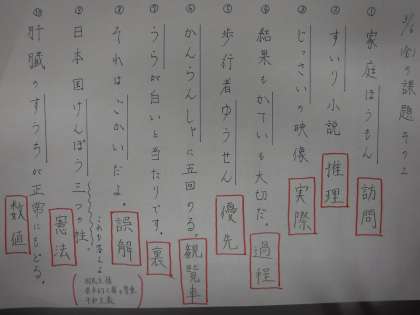 3/6(金)の課題その2
① 家庭ほうもん 訪問
② すいり小説 推理
③ じっさいの映像 実際
④ 結果もかていも大切だ。 過程
⑤ 歩行者ゆうせん 優先
⑥ かんらんしゃに五回のる。 観覧車
⑦ うらが白いと当たりです。 裏
⑧ それはごかいだよ。 誤解
⑨ 日本国けんぽう三つの柱。 憲法
国民主権
基本的人権の尊重
平和主義
⑩ 肝臓のすうちが正常にもどる。 数値